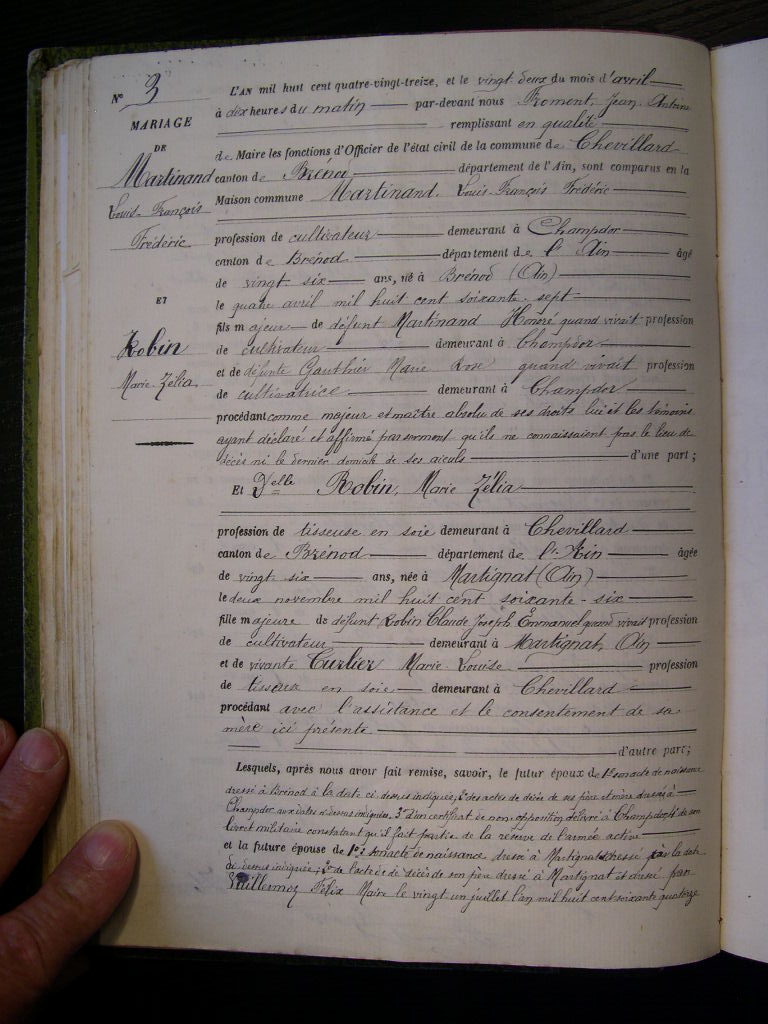 N° 3
MARIAGE
DE
Martinand
Louis François
Frédéric
ET
Robin
Marie Zélia
L'AN mil huit cent quatre-vingt-treize, et le vingt deux du mois d'avril
à dix heures du matin par-devant nous Froment, Jean Antoine
remplissant en qualité
de Maire les fonctions d'Officier de l'état civil de la commune de Chevillard
canton de Brénod département de l'Ain, sont comparus en la
Maison commune Martinand, Louis François Frédéric
profession de cultivateur demeurant à Champdor
canton de Brénod département de l'Ain âgé
de vingt six ans, né à Brénod (Ain)
le quatre avril mil huit cent soixante sept
fils majeur de défunt Martinand Honoré quand vivait profession
de cultivateur demeurant à Champdor
et de défunte Gauthier Marie Rose quand vivait profession
de cultivatrice demeurant à Champdor
procédant comme majeur et maître absolu de ses droits lui et les témoins
ayant déclaré et affirmé par serment qu'ils ne connaissaient pas le lieu de
décès ni le dernier domicile de ses aïeuls d'une part ;
Et Delle Robin, Marie Zélia
profession de tisseuse en soie demeurant à Chevillard
canton de Brénod département de l'Ain âgée
de vingt six ans, née à Martignat (Ain)
le deux novembre mil huit cent soixante-six
fille majeure de défunt Robin Claude Joseph Emmanuel quand vivait profession
de cultivateur demeurant à Martignat, Ain
et de vivante Curlier Marie Louise profession
de tisseuse en soie demeurant à Chevillard
procédant avec l'assistance et le consentement de sa
mère ici présente
d'autre part ;
Lesquels, après nous avoir fait remise, savoir, le futur époux de 1° son acte de naissance
dressé à Brénod à la date ci dessus indiquée, 2° des actes de décès de ses père et mère dressés à
Champdor aux dates ci dessus indiquées, 3° d'un certificat de non opposition délivré à Champdor 4° de son
livret militaire constatant qu'il fait partie de la réserve de l'armée active
et la future épouse de 1° son acte de naissance dressé à Martignat dressé à la date
ci dessus indiquée; 2° de l'acte de décès de son père dressé à Martignat et dressé par
Vuillermoz Félix Maire le vingt un juillet l'an mil huit cent soixante quatorze